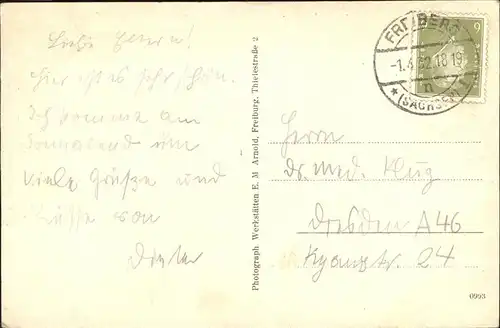 Liebe Eltern!
Hier ist es sehr schön.
Ich komme am
Sonnabend um
Viele Grüße und
Küsse von
Dieter
Photograph. Werkstätten E. M Arnold, Freiburg, Thielestraße 2
FREIBERG
-1.4.32.18-19
n
★ (SACHSEN)
9
Herrn
dr. med. Klug
Dresden A 46
24
0993